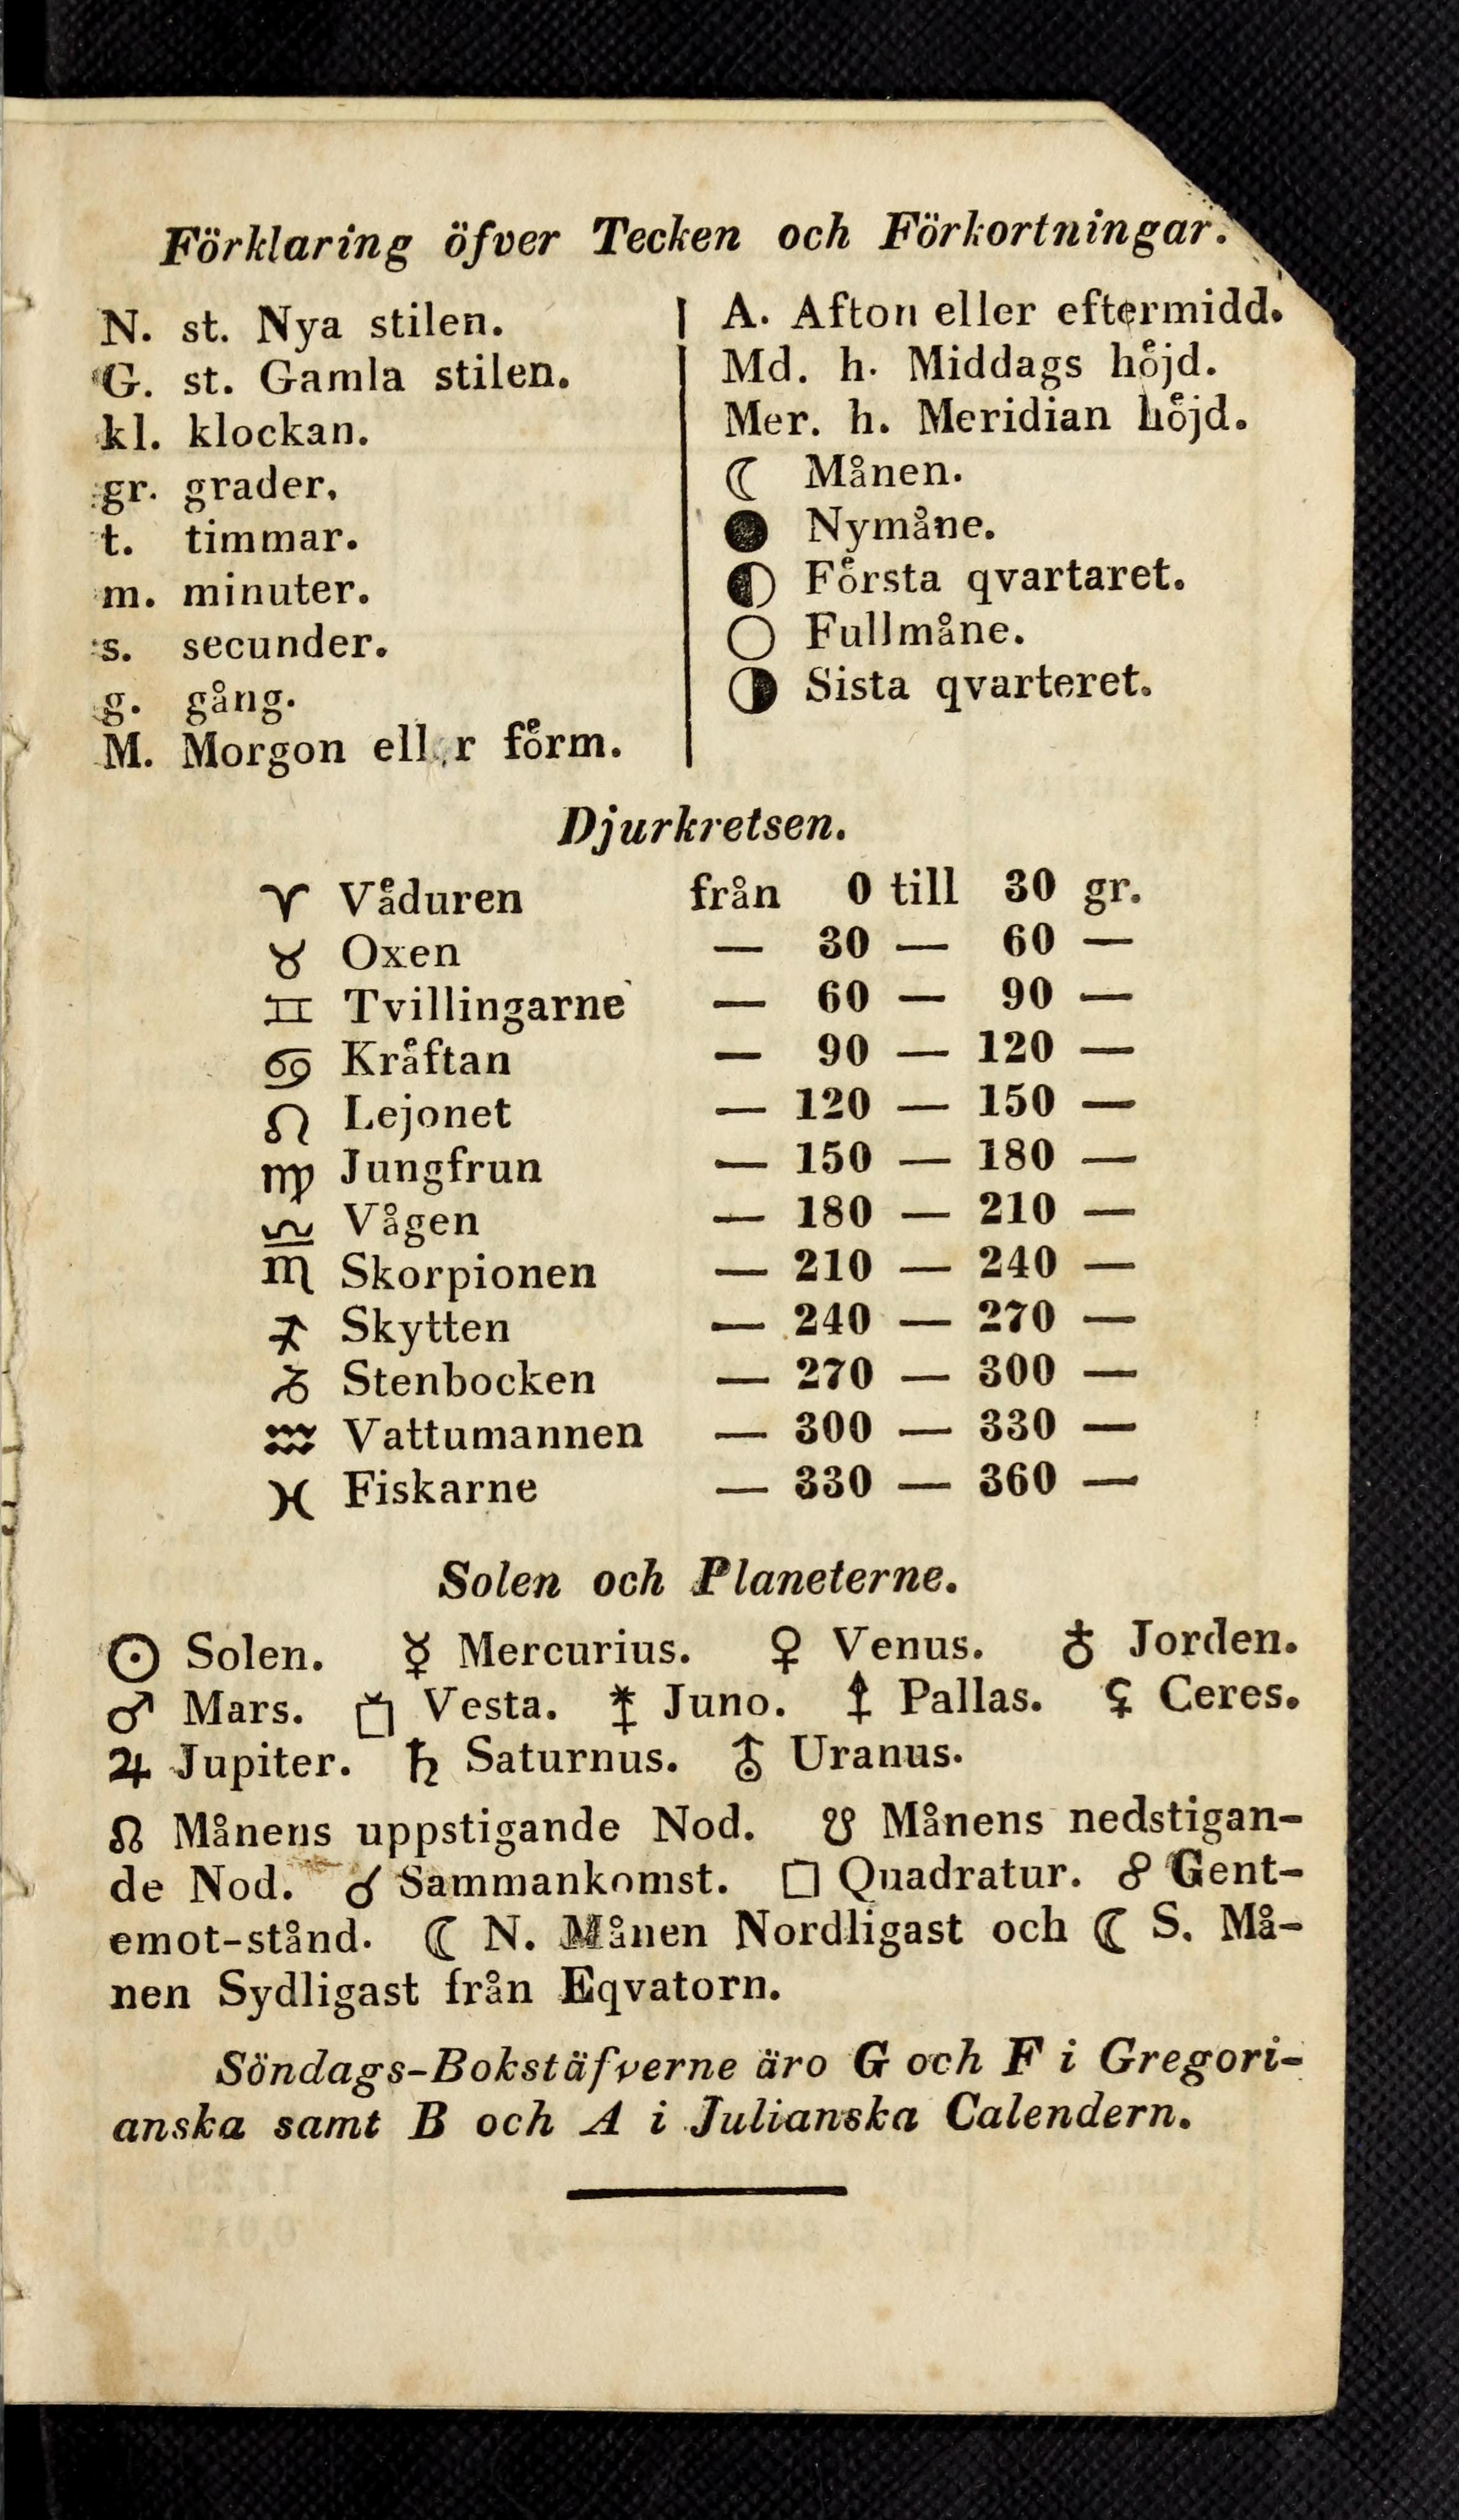 Förklaring öfver Tecken och Förkortningar.
N. st. Nya stilen.
G. st. Gamla stilen.
kl. klockan.
gr. grader.
t. timmar.
m. minuter.
s. secunder.
g. gång.
M. Morgon eller förm.
A. Afton eller eftermidd.
Md. h. Middags höjd.
Mer. h. Meridian höjd.
☾ Månen.
● Nymåne.
◐ Första qvartaret.
○ Fullmåne.
◑ Sista qvarteret.
Djurkretsen.
♈ Väduren från 0 till 30 gr.
♉ Oxen — 30 — 60 —
♊ Tvillingarne — 60 — 90 —
♋ Kräftan — 90 — 120 —
♌ Lejonet — 120 — 150 —
♍ Jungfrun — 150 — 180 —
♎ Vågen — 180 — 210 —
♏ Skorpionen — 210 — 240 —
♐ Skytten — 240 — 270 —
♑ Stenbocken — 270 — 300 —
♒ Vattumannen — 300 — 330 —
♓ Fiskarne — 330 — 360 —
Solen och Planeterne.
☉ Solen. ☿ Mercurius. ♀ Venus. ♁ Jorden.
♂ Mars. ⚶ Vesta. ⚵ Juno. ⚴ Pallas. ⚳ Ceres.
♃ Jupiter. ♄ Saturnus. ⛢ Uranus.
☊ Månens uppstigande Nod. ☋ Månens nedstigan-
de Nod. ☌ Sammankomst. □ Quadratur. ☍ Gent-
emot-stånd. ☾ N. Månen Nordligast och ☾ S. Må-
nen Sydligast från Eqvatorn.
Söndags-Bokstäfverne äro G och F i Gregori-
anska samt B och A i Julianska Calendern.